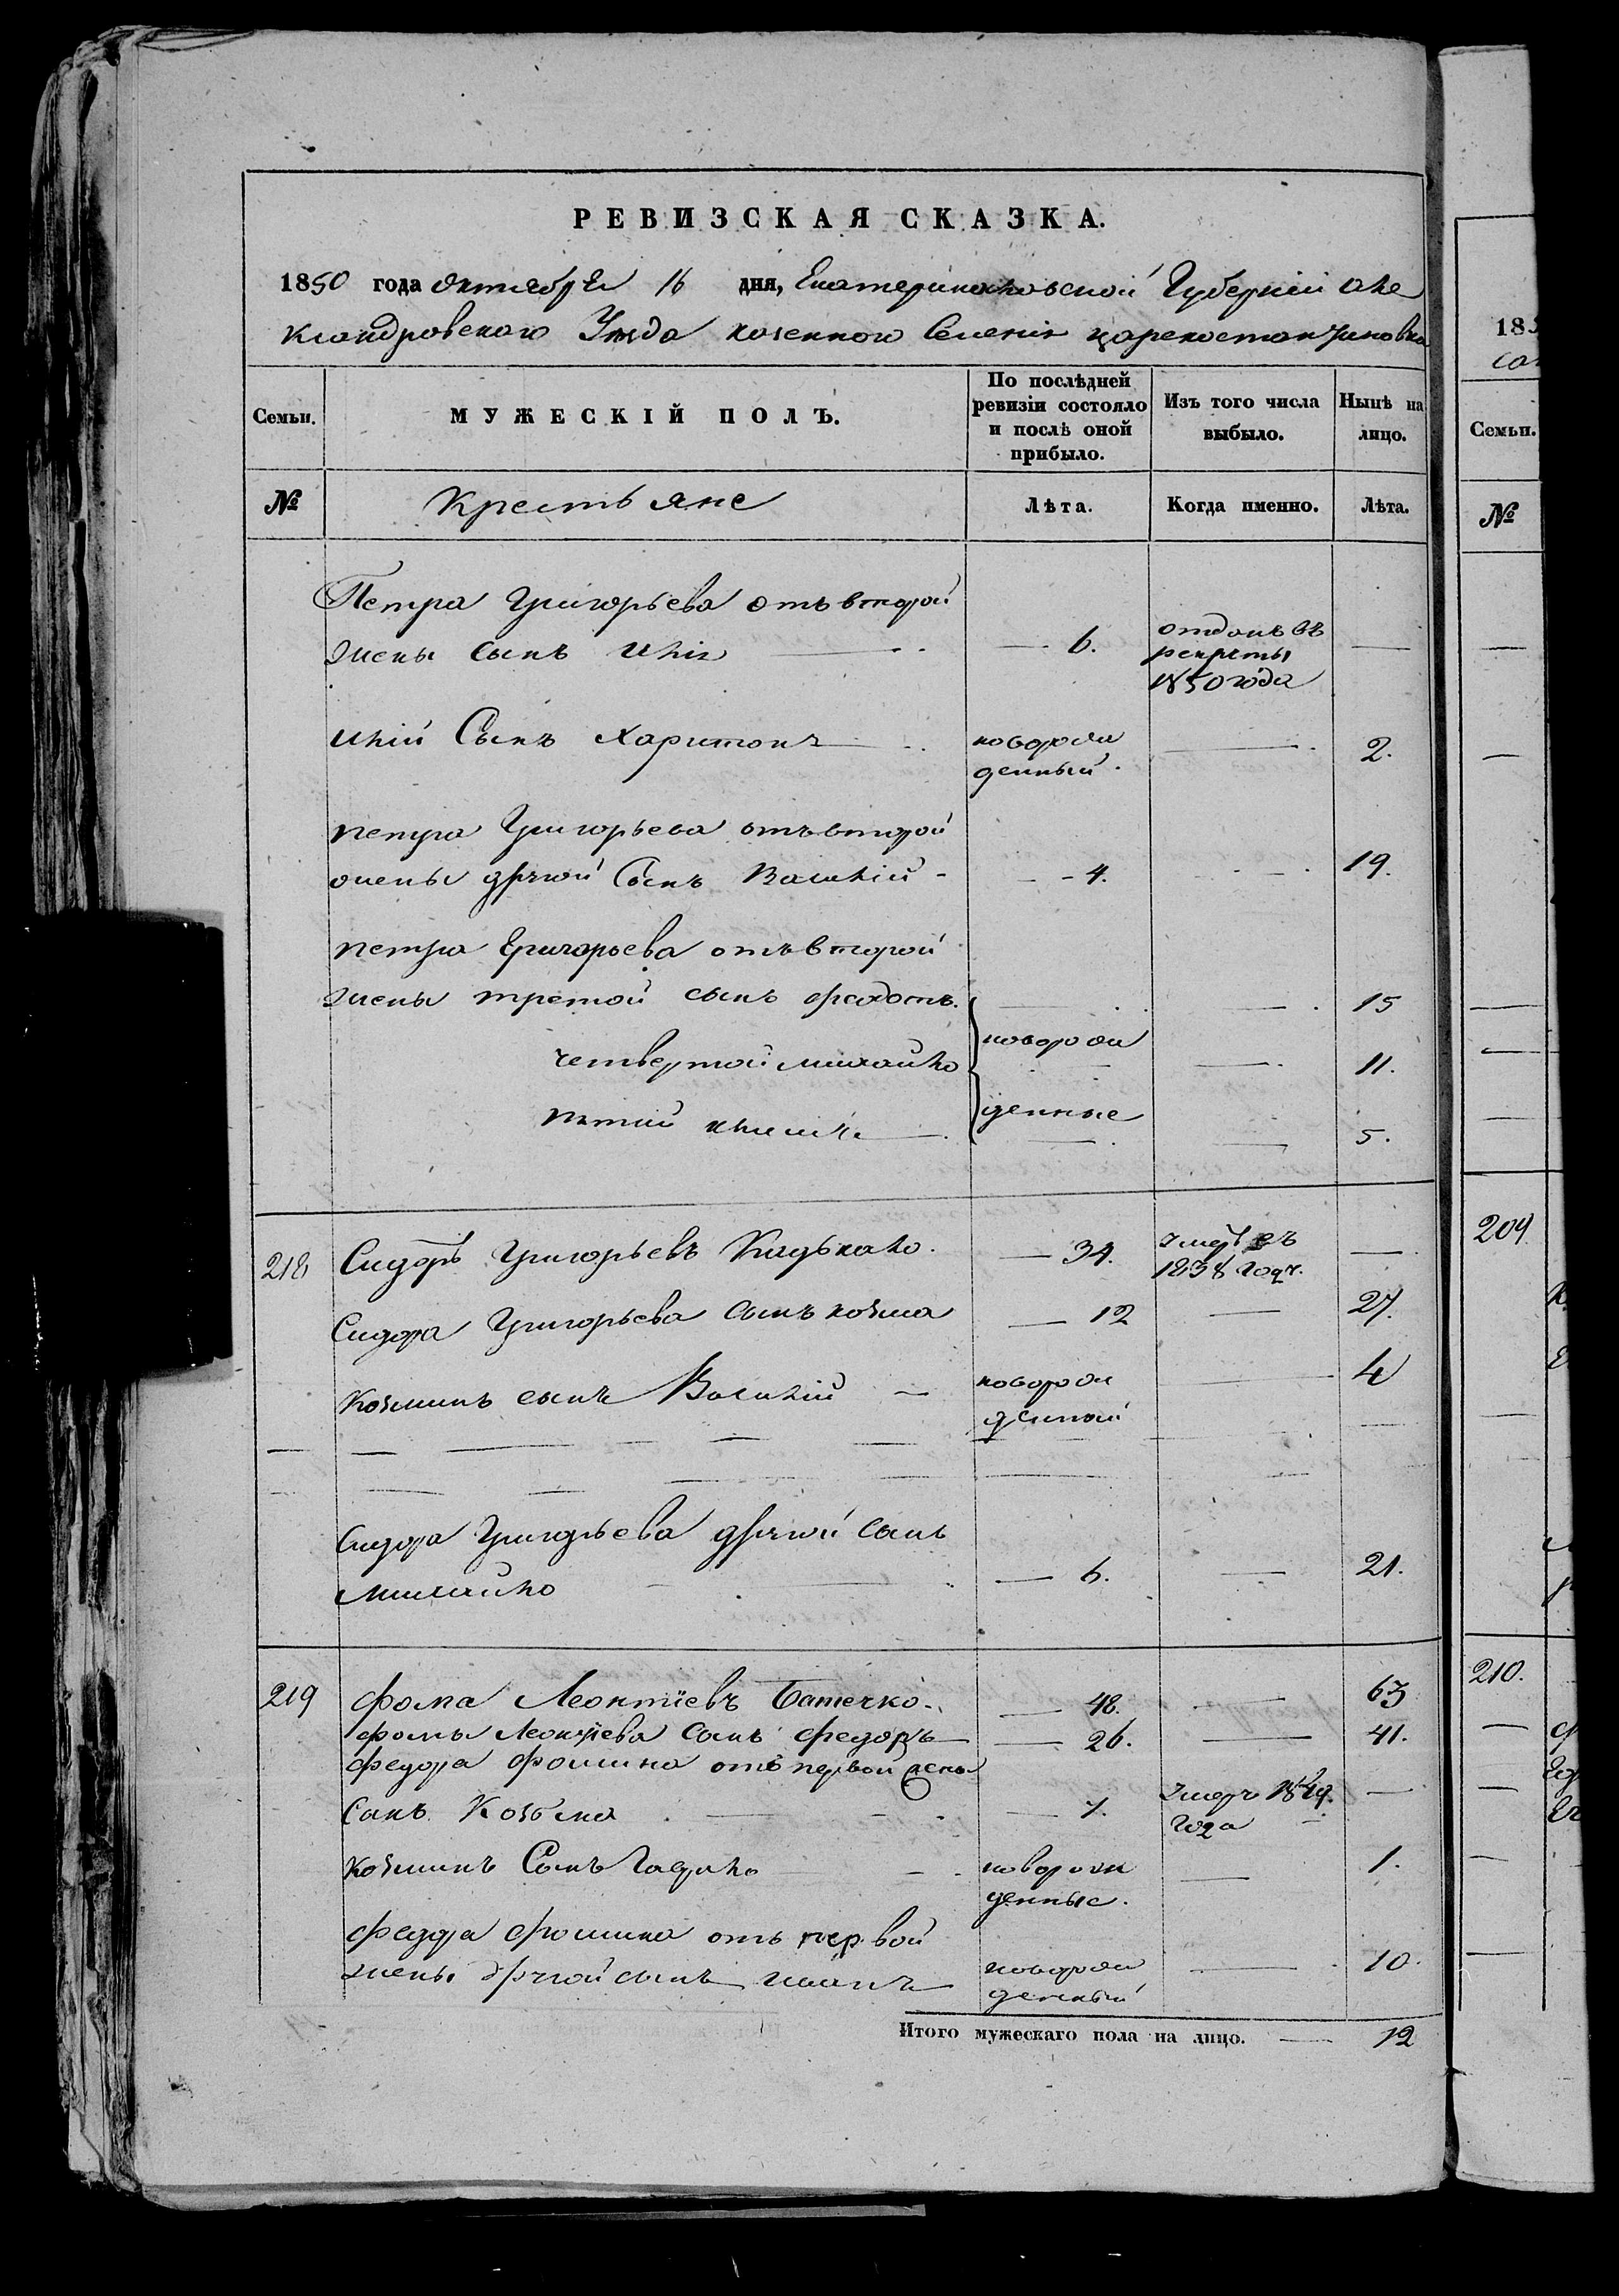 РЕВИЗСКАЯ СКАЗКА.
1850 года октября 16 дня, Екатеринославской Губернии Але
ксандровского Уезда казенного Селения Царекостантиновка
Семьи.
МУЖЕСКІЙ ПОЛЪ.
По послѣдней ревизіи состояло и послѣ оной прибыло.
Изъ того числа выбыло.
Нынѣ на лицо.
№ Крестьяне Лѣта. Когда именно. Лѣта.
Петра Григорьева отъ второй
жены сынъ Илія 6. отданъ въ рекруты 1850 года
Илiи Сынъ Харитонъ новорожденный. 2.
Петра Григорьева отъ второй
жены другой Сынъ Василій 4. 19.
Петра Григорьева отъ второй
жены третой сынъ Федотъ. 15
четвертой Михайло новорожденные 11.
пятий 5.
218 Сидоръ Григорьевъ 34. умеръ въ 1838 году.
Сидора Григорьева сынъ козма 12 27.
Козминъ сынъ Василій новорожденой 4
Сидора Григорьева другой сынъ
Михайло 6. 21.
219 Фома Леонтіевъ Батечко. 48. 63
Фомы Леонтіева сынъ Федоръ 26. 41.
Федора Фомина отъ первой жены
Сынъ Козьма 7. умеръ 1849. года
Козминъ Сынъ Гаврило новорожденные. 1.
Федора Фомина отъ первой
жены другой сынъ Иванъ новорожденный 10.
Итого мужескаго пола на лицо. 12
185
Семьи.
№
209
210.